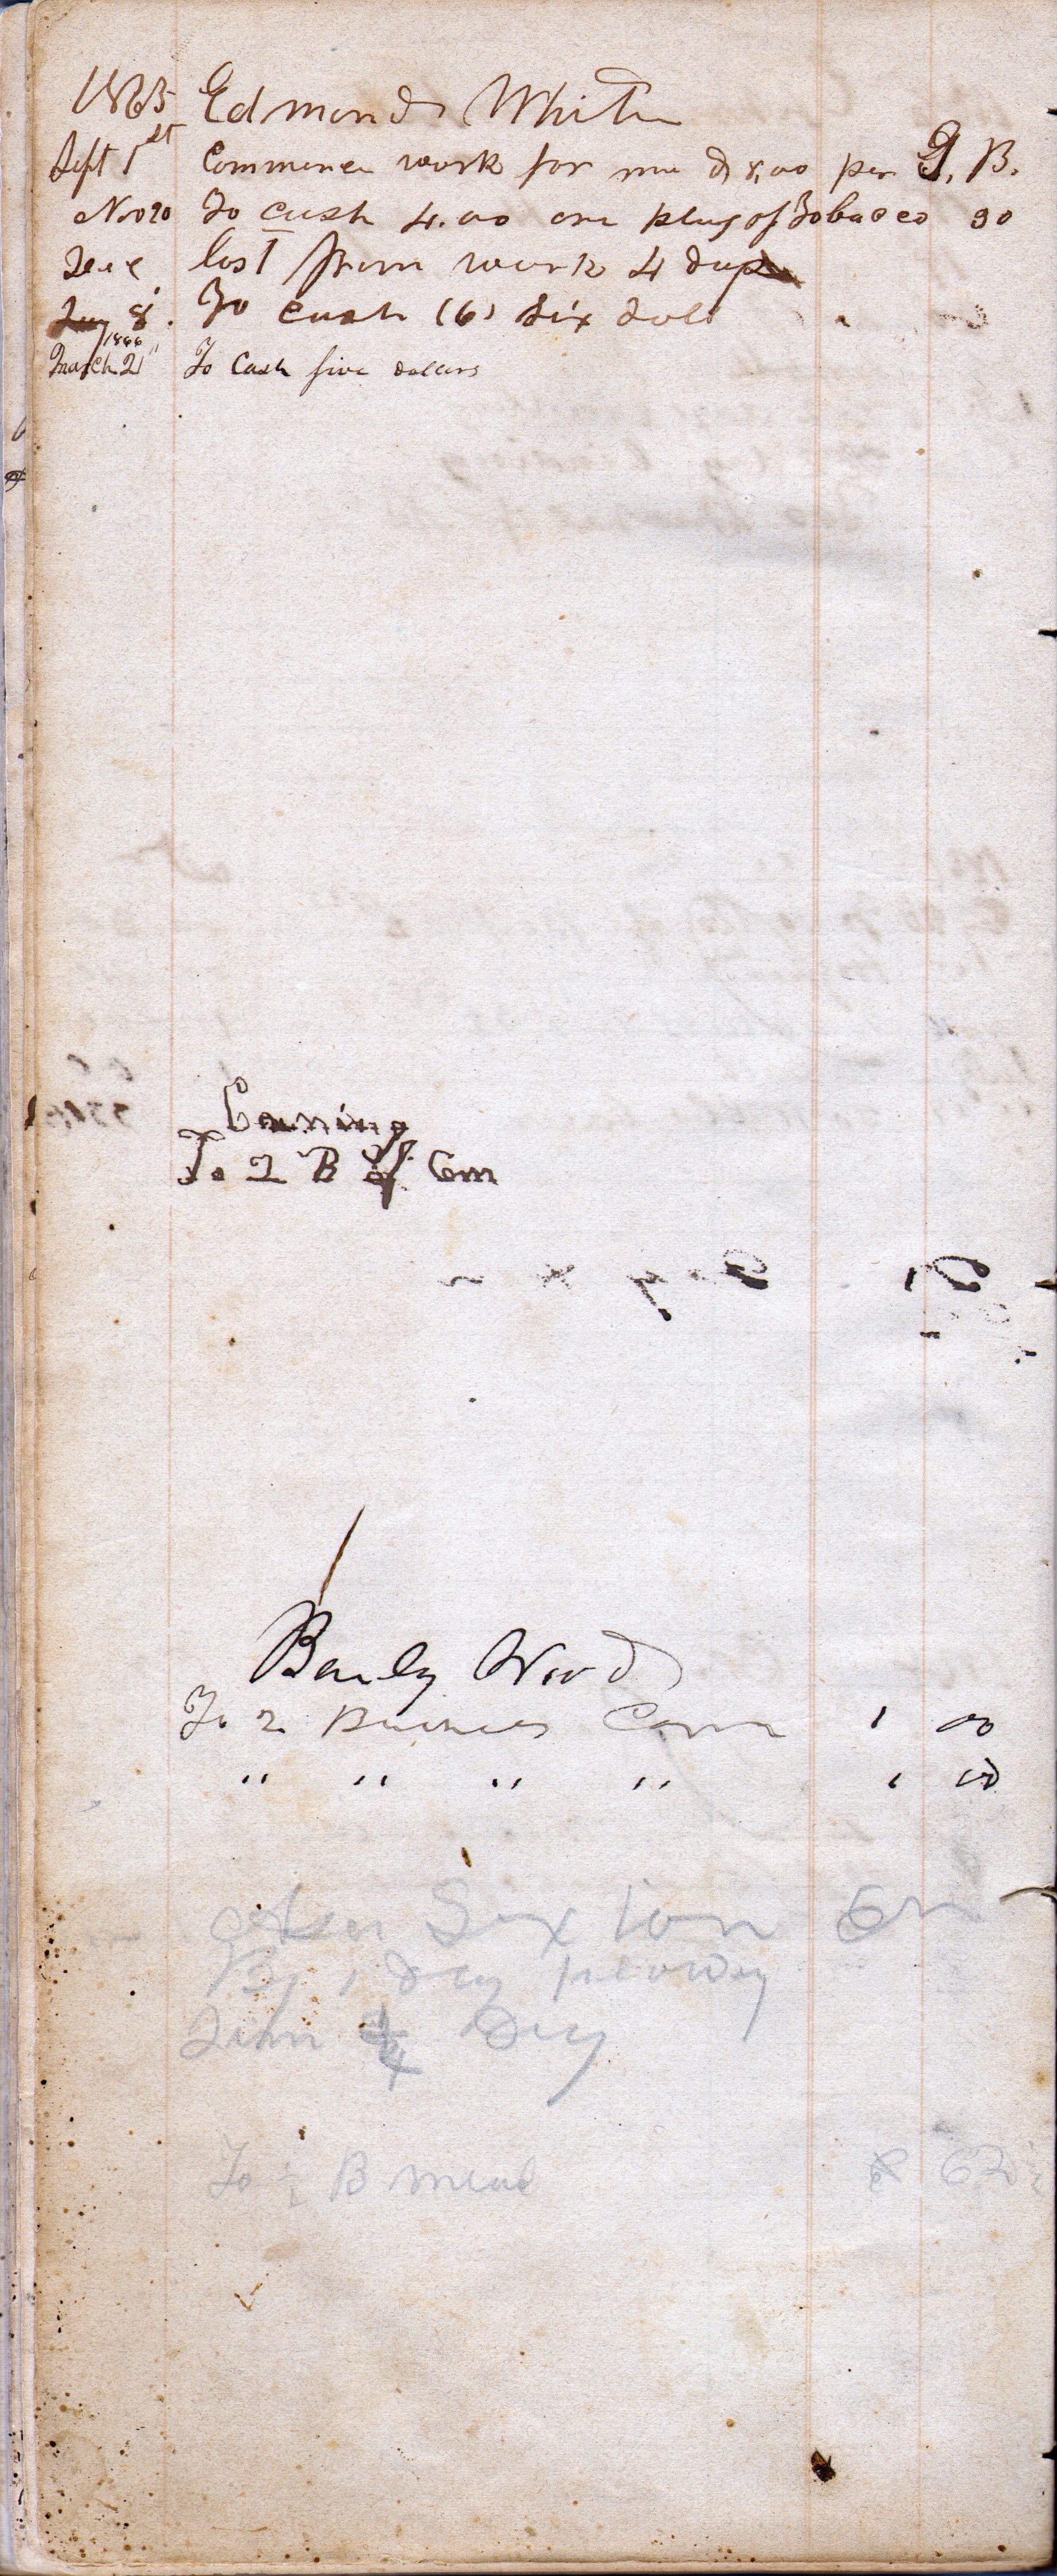 1865 Edmond White
Sept 1st Commence work for me D 8,00 per G. B.
Nov 20 To cash 4.00 one plug of Tobacco 30
Dec lost from work 4 days
Jany 8 To cash (6) six doll
1866
March 2 To Cash five dollars
To 2 B of Corn
Wood
To 2 Bushels Corn 1 00
" " " " 1 00
Sexton Cr
By 1 Day plowing
Day
To ½ B meal 62½